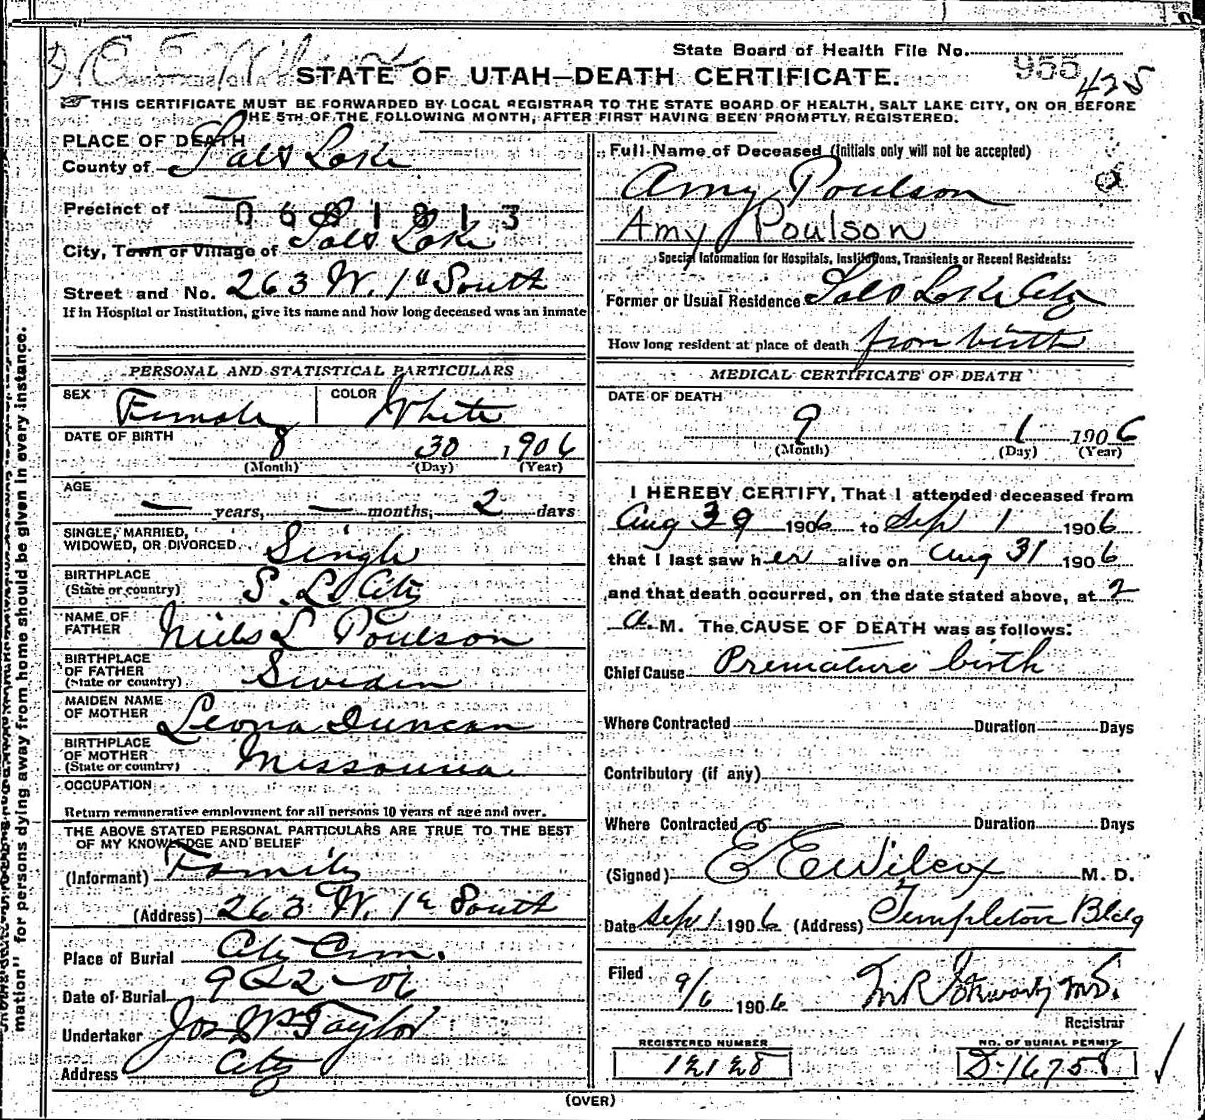 State Board of Health File No. 955
425
STATE OF UTAH—DEATH CERTIFICATE.
THIS CERTIFICATE MUST BE FORWARDED BY LOCAL REGISTRAR TO THE STATE BOARD OF HEALTH, SALT LAKE CITY, ON OR BEFORE
THE 5TH OF THE FOLLOWING MONTH, AFTER FIRST HAVING BEEN PROMPTLY REGISTERED.
PLACE OF DEATH
County of Salt Lake
Precinct of
0681813
City, Town or Village of Salt Lake
Street and No. 263 W. 1st South
If in Hospital or Institution, give its name and how long deceased was an inmate
PERSONAL AND STATISTICAL PARTICULARS
SEX Female COLOR White
DATE OF BIRTH 8 30 1906
(Month) (Day) (Year)
AGE
— years, — months, 2 days
SINGLE, MARRIED,
WIDOWED, OR DIVORCED Single
BIRTHPLACE
(State or country) S. L. City
NAME OF
FATHER Niels L Poulson
BIRTHPLACE
OF FATHER
(State or country) Sweden
MAIDEN NAME
OF MOTHER Leona Duncan
BIRTHPLACE
OF MOTHER
(State or country) Missouria
OCCUPATION
Return remunerative employment for all persons 10 years of age and over.
THE ABOVE STATED PERSONAL PARTICULARS ARE TRUE TO THE BEST
OF MY KNOWLEDGE AND BELIEF
(Informant) Family
(Address) 263 W. 1st South
Place of Burial City Cem.
Date of Burial 9-2-06
Undertaker Jos Wm Taylor
Address City
Full Name of Deceased (initials only will not be accepted)
Amy Poulson
Amy Poulson
Special Information for Hospitals, Institutions, Transients or Recent Residents:
Former or Usual Residence Salt Lake City
How long resident at place of death from birth
MEDICAL CERTIFICATE OF DEATH
DATE OF DEATH
9 1 1906
(Month) (Day) (Year)
I HEREBY CERTIFY, That I attended deceased from
Aug 30 1906 to Sep 1 1906
that I last saw her alive on Aug 31 1906
and that death occurred, on the date stated above, at 2
a. M. The CAUSE OF DEATH was as follows:
Chief Cause Premature birth
Where Contracted Duration Days
Contributory (if any)
Where Contracted Duration Days
(Signed) E E Wilcox M. D.
Date Sep 1 1906 (Address) Templeton Bldg
Filed 9/6 1906
Registrar
REGISTERED NUMBER
12128
NO. OF BURIAL PERMIT
D-16758
(OVER)
mation" for persons dying away from home should be given in every instance.